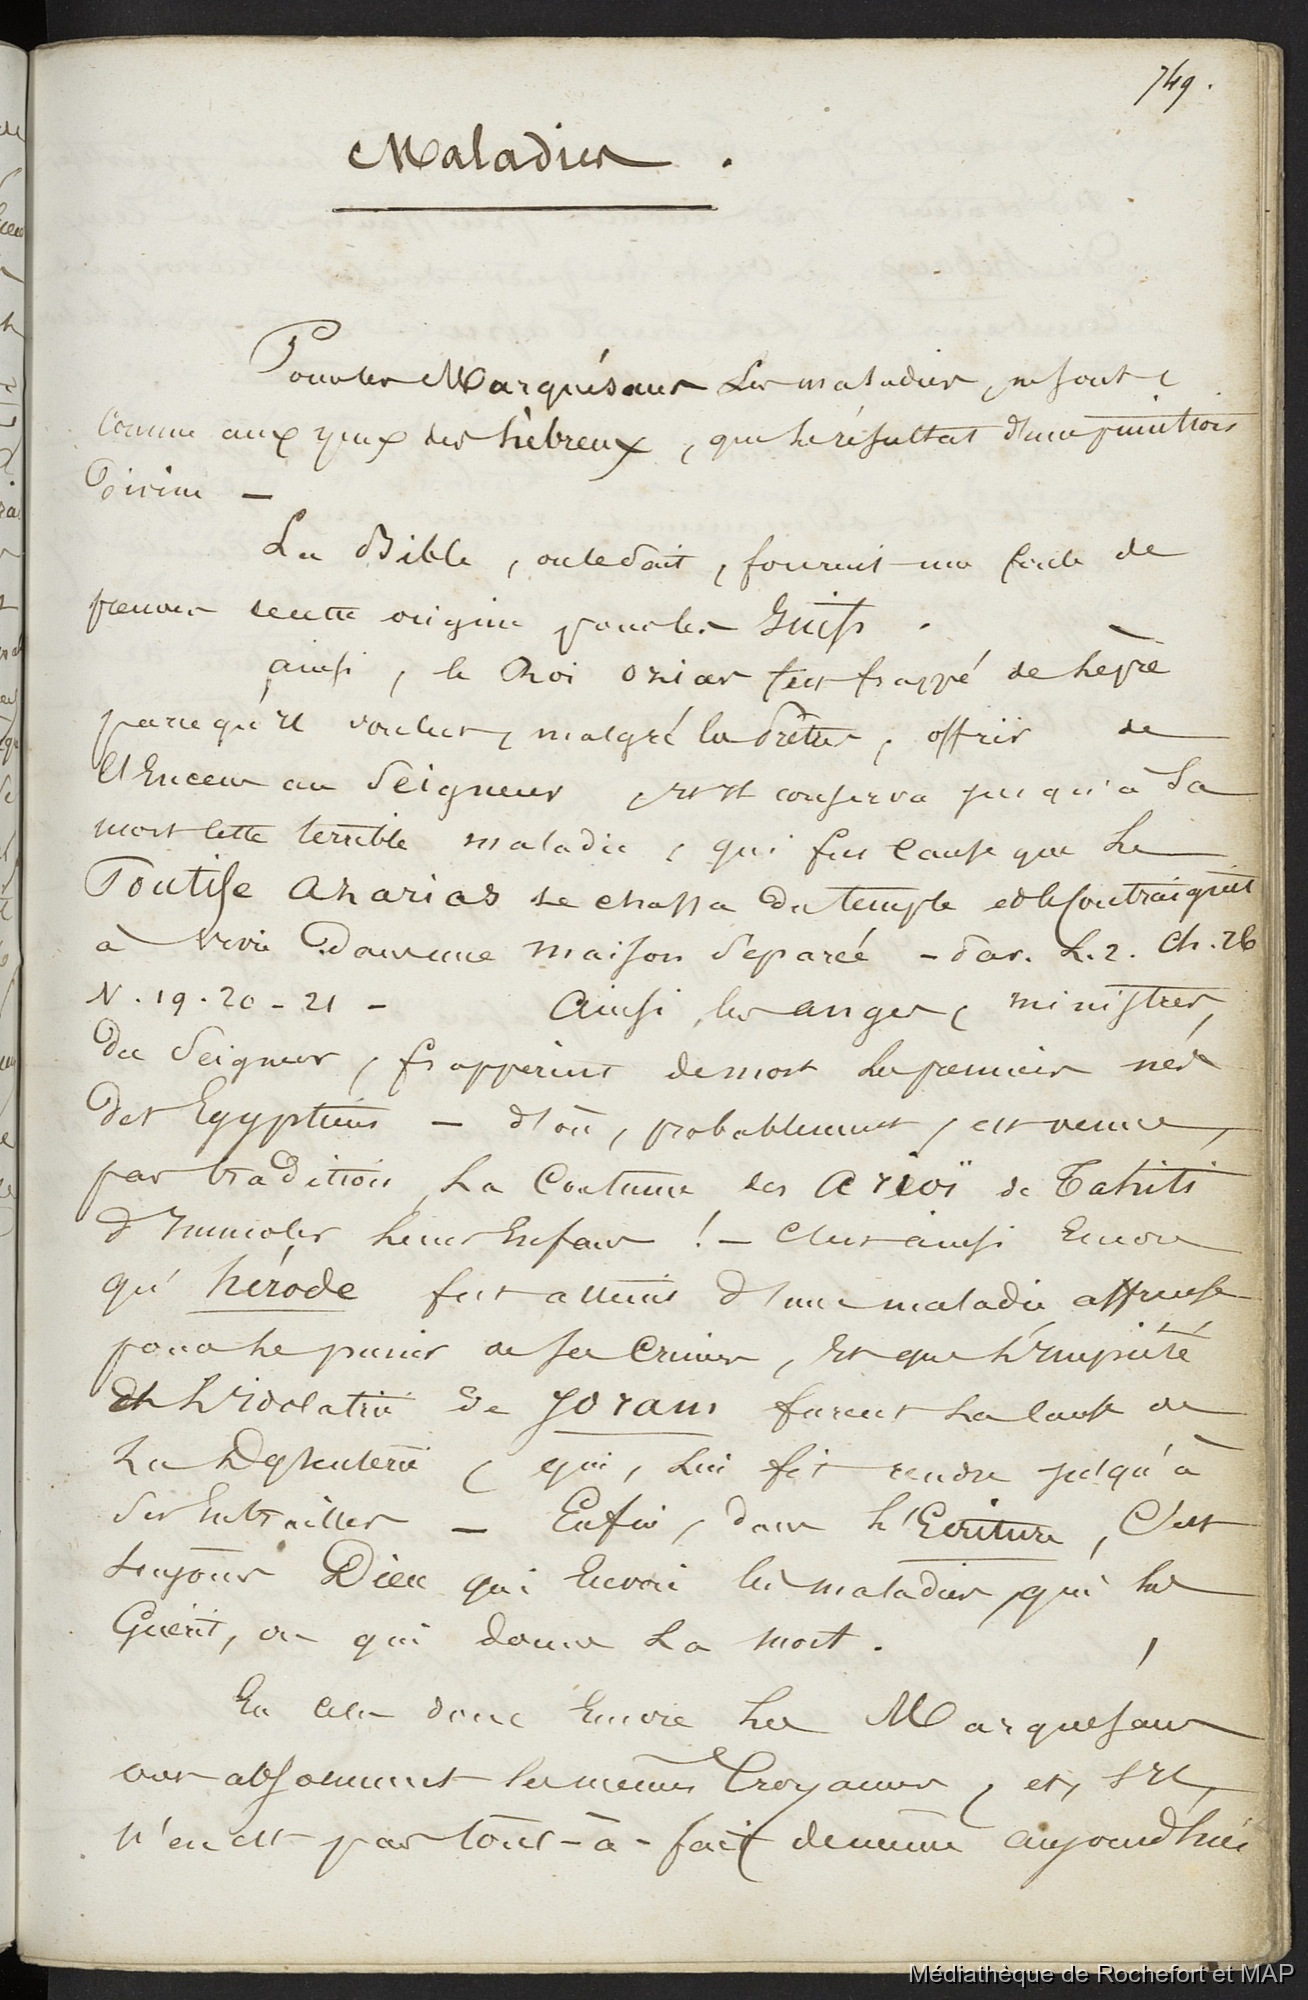 749.
Maladies.
Pour les Marquésans les maladies, ne sont,
comme aux yeux des hébreux, que le résultat d'une punition
Divine —
La Bible, on le sait, fournit une foule de
preuves de cette origine pour les Juifs.
ainsi, le Roi Ozias fut frappé de lèpre
parcequ'il voulut, malgré les Prêtres, offrir de
l'Encens au Seigneur, et il conserva jusqu'à sa
mort cette terrible maladie, qui fut cause que le
Pontife Azarias le chassa du temple et le contraignit
à vivre dans une maison séparée — Par. L. 2. Ch. 26
V. 19. 20 - 21 — Ainsi, les anges, ministres,
du Seigneur, frappèrent de mort les premiers nés
des Egyptiens — d'où, probablement, est venue,
par tradition, la Coutume des Arioï de Tahiti
d'immoler leurs Enfans ! — C'est ainsi Encore
qu'hérode fut atteint d'une maladie affreuse
pour le punir de ses Crimes, et que l'impiété
et l'idolatrie de Joram furent la cause de
la Dysenterie, qui, lui fit rendre jusqu'à
ses Entrailles — Enfin, dans l'Ecriture, C'est
toujours Dieu qui Envoie les maladies, qui les
Guérit, ou qui donne la mort.
En cela donc Encore les Marquésans
ont absolument les mêmes Croyances, et, s'il,
n'en est pas tout-à-fait de même aujourd'hui
Médiathèque de Rochefort et MAP